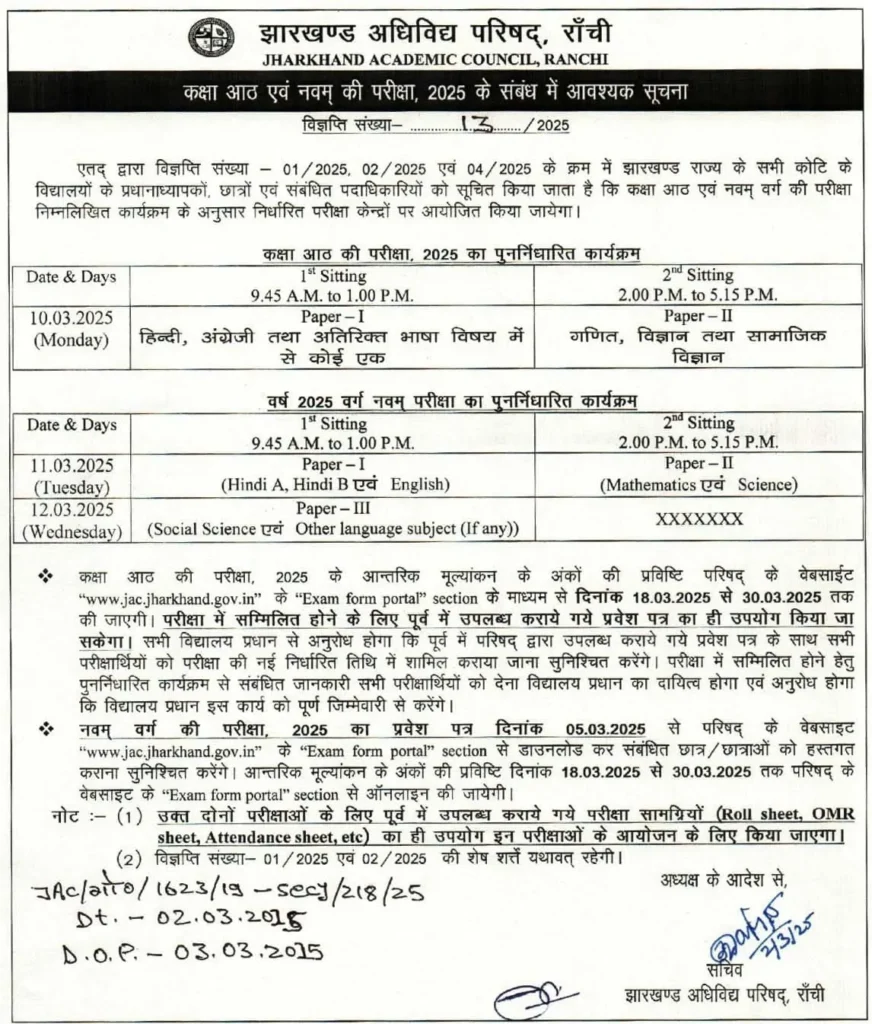 झारखण्ड अधिविद्य परिषद्, राँची
JHARKHAND ACADEMIC COUNCIL, RANCHI
कक्षा आठ एवं नवम् की परीक्षा, 2025 के संबंध में आवश्यक सूचना
विज्ञप्ति संख्या- .................13......./2025
एतद् द्वारा विज्ञप्ति संख्या – 01/2025, 02/2025 एवं 04/2025 के क्रम में झारखण्ड राज्य के सभी कोटि के
विद्यालयों के प्रधानाध्यापकों, छात्रों एवं संबंधित पदाधिकारियों को सूचित किया जाता है कि कक्षा आठ एवं नवम् वर्ग की परीक्षा
निम्नलिखित कार्यक्रम के अनुसार निर्धारित परीक्षा केन्द्रों पर आयोजित किया जायेगा।
कक्षा आठ की परीक्षा, 2025 का पुनर्निधारित कार्यक्रम
Date & Days 1st Sitting 2nd Sitting
9.45 A.M. to 1.00 P.M. 2.00 P.M. to 5.15 P.M.
10.03.2025 Paper – I Paper – II
(Monday) हिन्दी, अंग्रेजी तथा अतिरिक्त भाषा विषय में गणित, विज्ञान तथा सामाजिक
से कोई एक विज्ञान
वर्ष 2025 वर्ग नवम् परीक्षा का पुनर्निधारित कार्यक्रम
Date & Days 1st Sitting 2nd Sitting
9.45 A.M. to 1.00 P.M. 2.00 P.M. to 5.15 P.M.
11.03.2025 Paper – I Paper – II
(Tuesday) (Hindi A, Hindi B एवं English) (Mathematics एवं Science)
12.03.2025 Paper – III XXXXXXX
(Wednesday) (Social Science एवं Other language subject (If any))
❖ कक्षा आठ की परीक्षा, 2025 के आन्तरिक मूल्यांकन के अंकों की प्रविष्टि परिषद् के वेबसाईट
“www.jac.jharkhand.gov.in” के “Exam form portal” section के माध्यम से दिनांक 18.03.2025 से 30.03.2025 तक
की जाएगी। परीक्षा में सम्मिलित होने के लिए पूर्व में उपलब्ध कराये गये प्रवेश पत्र का ही उपयोग किया जा
सकेगा। सभी विद्यालय प्रधान से अनुरोध होगा कि पूर्व में परिषद् द्वारा उपलब्ध कराये गये प्रवेश पत्र के साथ सभी
परीक्षार्थियों को परीक्षा की नई निर्धारित तिथि में शामिल कराया जाना सुनिश्चित करेंगे। परीक्षा में सम्मिलित होने हेतु
पुनर्निधारित कार्यक्रम से संबंधित जानकारी सभी परीक्षार्थियों को देना विद्यालय प्रधान का दायित्व होगा एवं अनुरोध होगा
कि विद्यालय प्रधान इस कार्य को पूर्ण जिम्मेवारी से करेंगे।
❖ नवम् वर्ग की परीक्षा, 2025 का प्रवेश पत्र दिनांक 05.03.2025 से परिषद् के वेबसाइट
“www.jac.jharkhand.gov.in” के “Exam form portal” section से डाउनलोड कर संबंधित छात्र/छात्राओं को हस्तगत
कराना सुनिश्चित करेंगे। आन्तरिक मूल्यांकन के अंकों की प्रविष्टि दिनांक 18.03.2025 से 30.03.2025 तक परिषद् के
वेबसाइट के “Exam form portal” section से ऑनलाइन की जायेगी।
नोट :– (1) उक्त दोनों परीक्षाओं के लिए पूर्व में उपलब्ध कराये गये परीक्षा सामग्रियों (Roll sheet, OMR
sheet, Attendance sheet, etc) का ही उपयोग इन परीक्षाओं के आयोजन के लिए किया जाएगा।
(2) विज्ञप्ति संख्या– 01/2025 एवं 02/2025 की शेष शर्त्तें यथावत् रहेगी।
अध्यक्ष के आदेश से,
JAC/गो०/1623/19 – Secy/218/25
Dt. – 02.03.2015
D.O.P. – 03.03.2015
2/3/25
सचिव
झारखण्ड अधिविद्य परिषद्, राँची